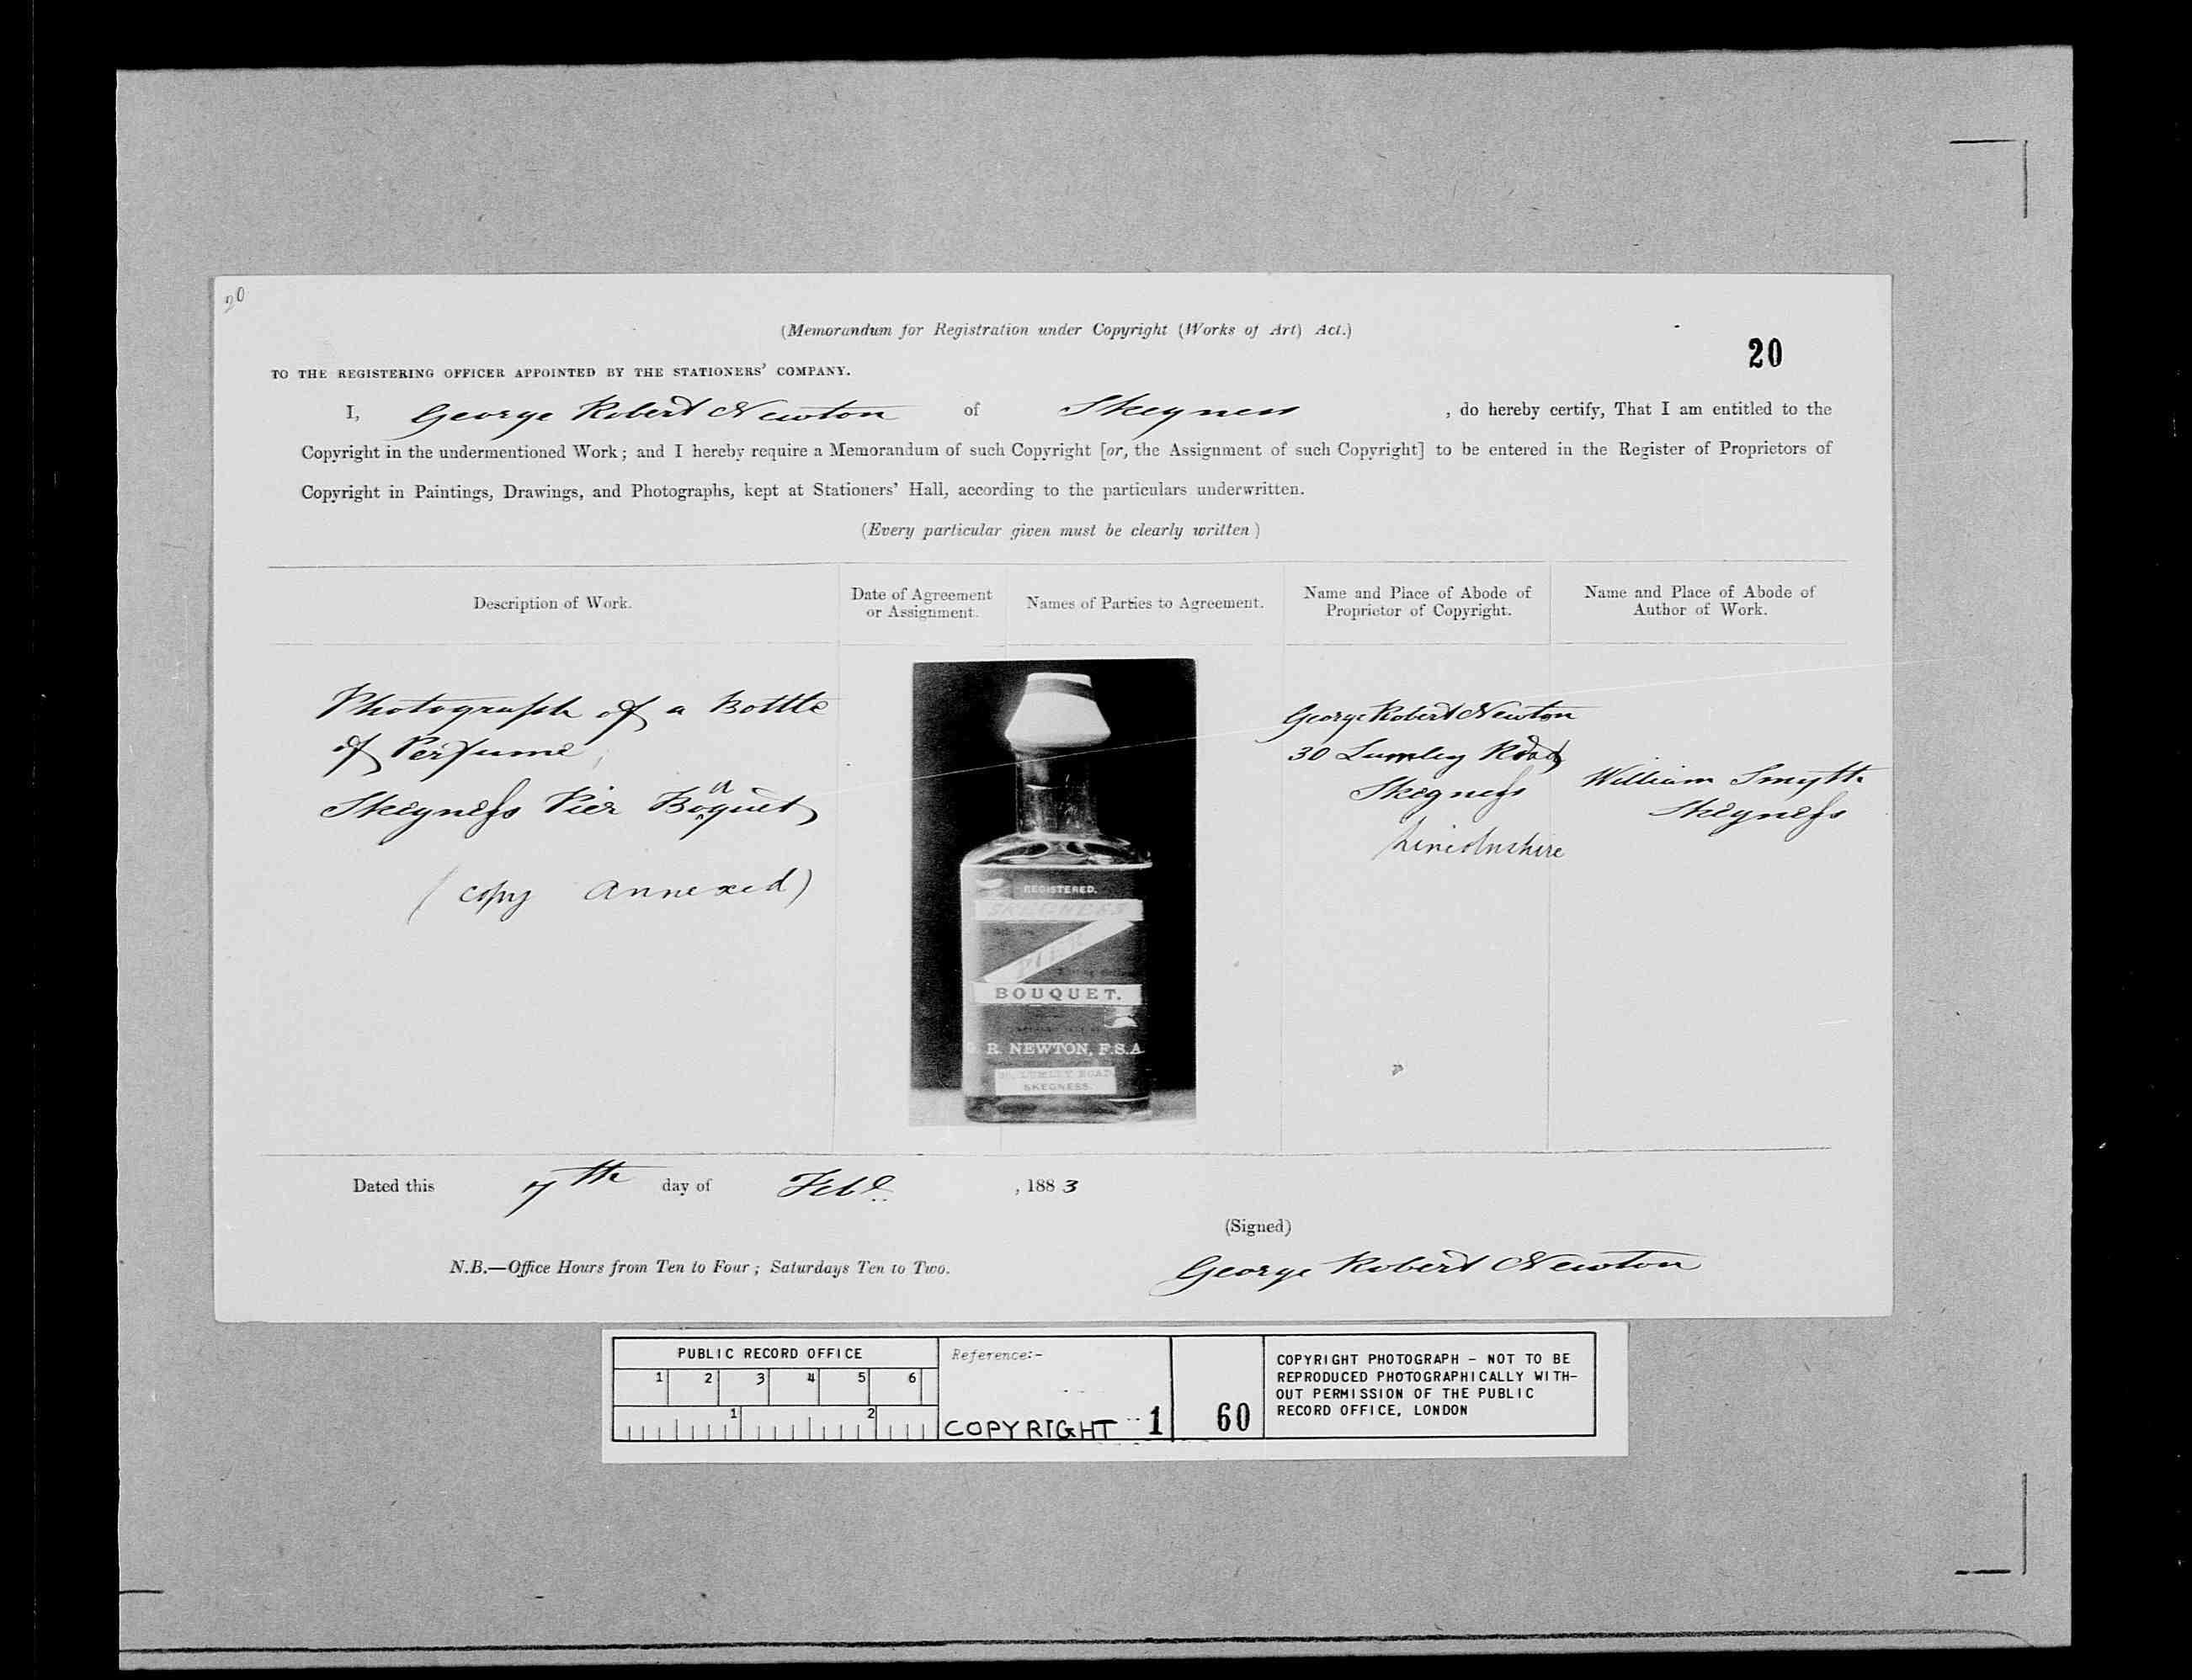 20
(Memorandum for Registration under Copyright (Works of Art) Act.)
20
TO THE REGISTERING OFFICER APPOINTED BY THE STATIONERS' COMPANY.
I, George Robert Newton of Skegness, do hereby certify, That I am entitled to the
Copyright in the undermentioned Work; and I hereby require a Memorandum of such Copyright [or, the Assignment of such Copyright] to be entered in the Register of Proprietors of
Copyright in Paintings, Drawings, and Photographs, kept at Stationers' Hall, according to the particulars underwritten.
(Every particular given must be clearly written)
Description of Work.
Date of Agreement
or Assignment.
Names of Parties to Agreement.
Name and Place of Abode of
Proprietor of Copyright.
Name and Place of Abode of
Author of Work.
Photograph of a Bottle
of Perfume,
Skegness Pier Bouquet
(copy annexed)
REGISTERED.
SKEGNESS
PIER
BOUQUET.
R. NEWTON, F.S.A.
LUMLEY ROAD,
SKEGNESS.
George Robert Newton
30 Lumley Road
Skegness
Lincolnshire
William Smyth
Skegness
Dated this 7th day of Feb, 1883
(Signed)
N.B.—Office Hours from Ten to Four; Saturdays Ten to Two.
George Robert Newton
PUBLIC RECORD OFFICE
1 2 3 4 5 6
1 2
Reference:-
COPYRIGHT 1
60
COPYRIGHT PHOTOGRAPH - NOT TO BE
REPRODUCED PHOTOGRAPHICALLY WITH-
OUT PERMISSION OF THE PUBLIC
RECORD OFFICE, LONDON